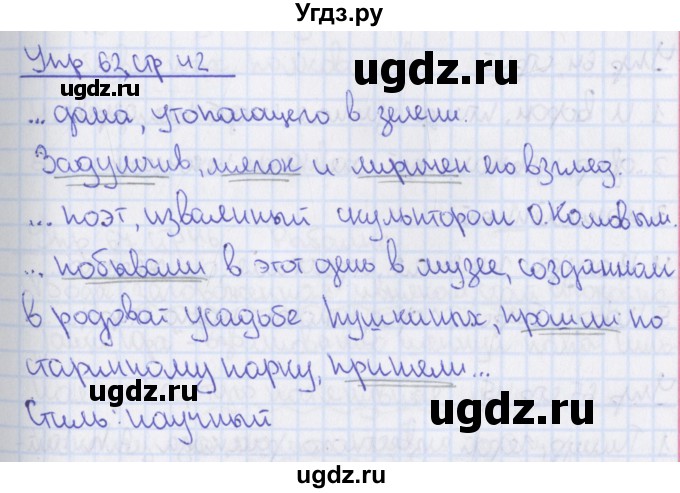 Угдз.ру
Упр 62, стр 42
ugdz.ru
... дома, утопающего в зелени.
Задумчив, мягок и лиричен его взгляд.
ugdz.ru ugdz.ru
... поэт, изваленный скульптором О. Комовым.
... побывали в этот день в музее, созданном
в родоват усадьбе Пушкиных, прошли по
старинному парку, пришли...
ugdz.ru ugdz.ru
Стиль: научный
ugdz.ru